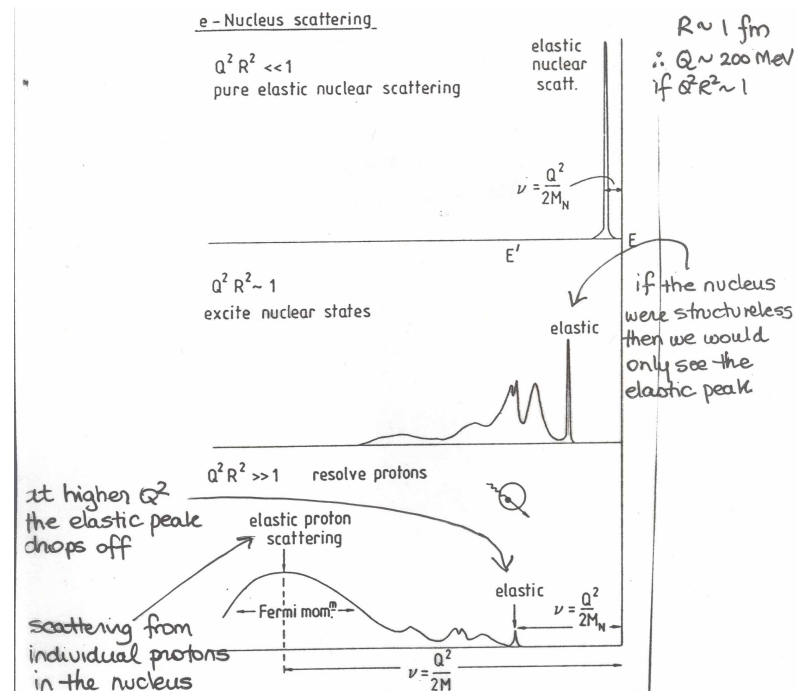 e - Nucleus scattering
R ~ 1 fm
∴ Q ~ 200 MeV
if Q²R² ~ 1
Q² R² <<1
pure elastic nuclear scattering
elastic
nuclear
scatt.
ν = Q²/2M_N
E'
E
Q² R² ~ 1
excite nuclear states
elastic
if the nucleus
were structureless
then we would
only see the
elastic peak
Q² R² >>1 resolve protons
at higher Q²
the elastic peak
drops off
elastic proton
scattering
Fermi mom.ᵐ
elastic
ν = Q²/2M_N
scattering from
individual protons
in the nucleus
ν = Q²/2M